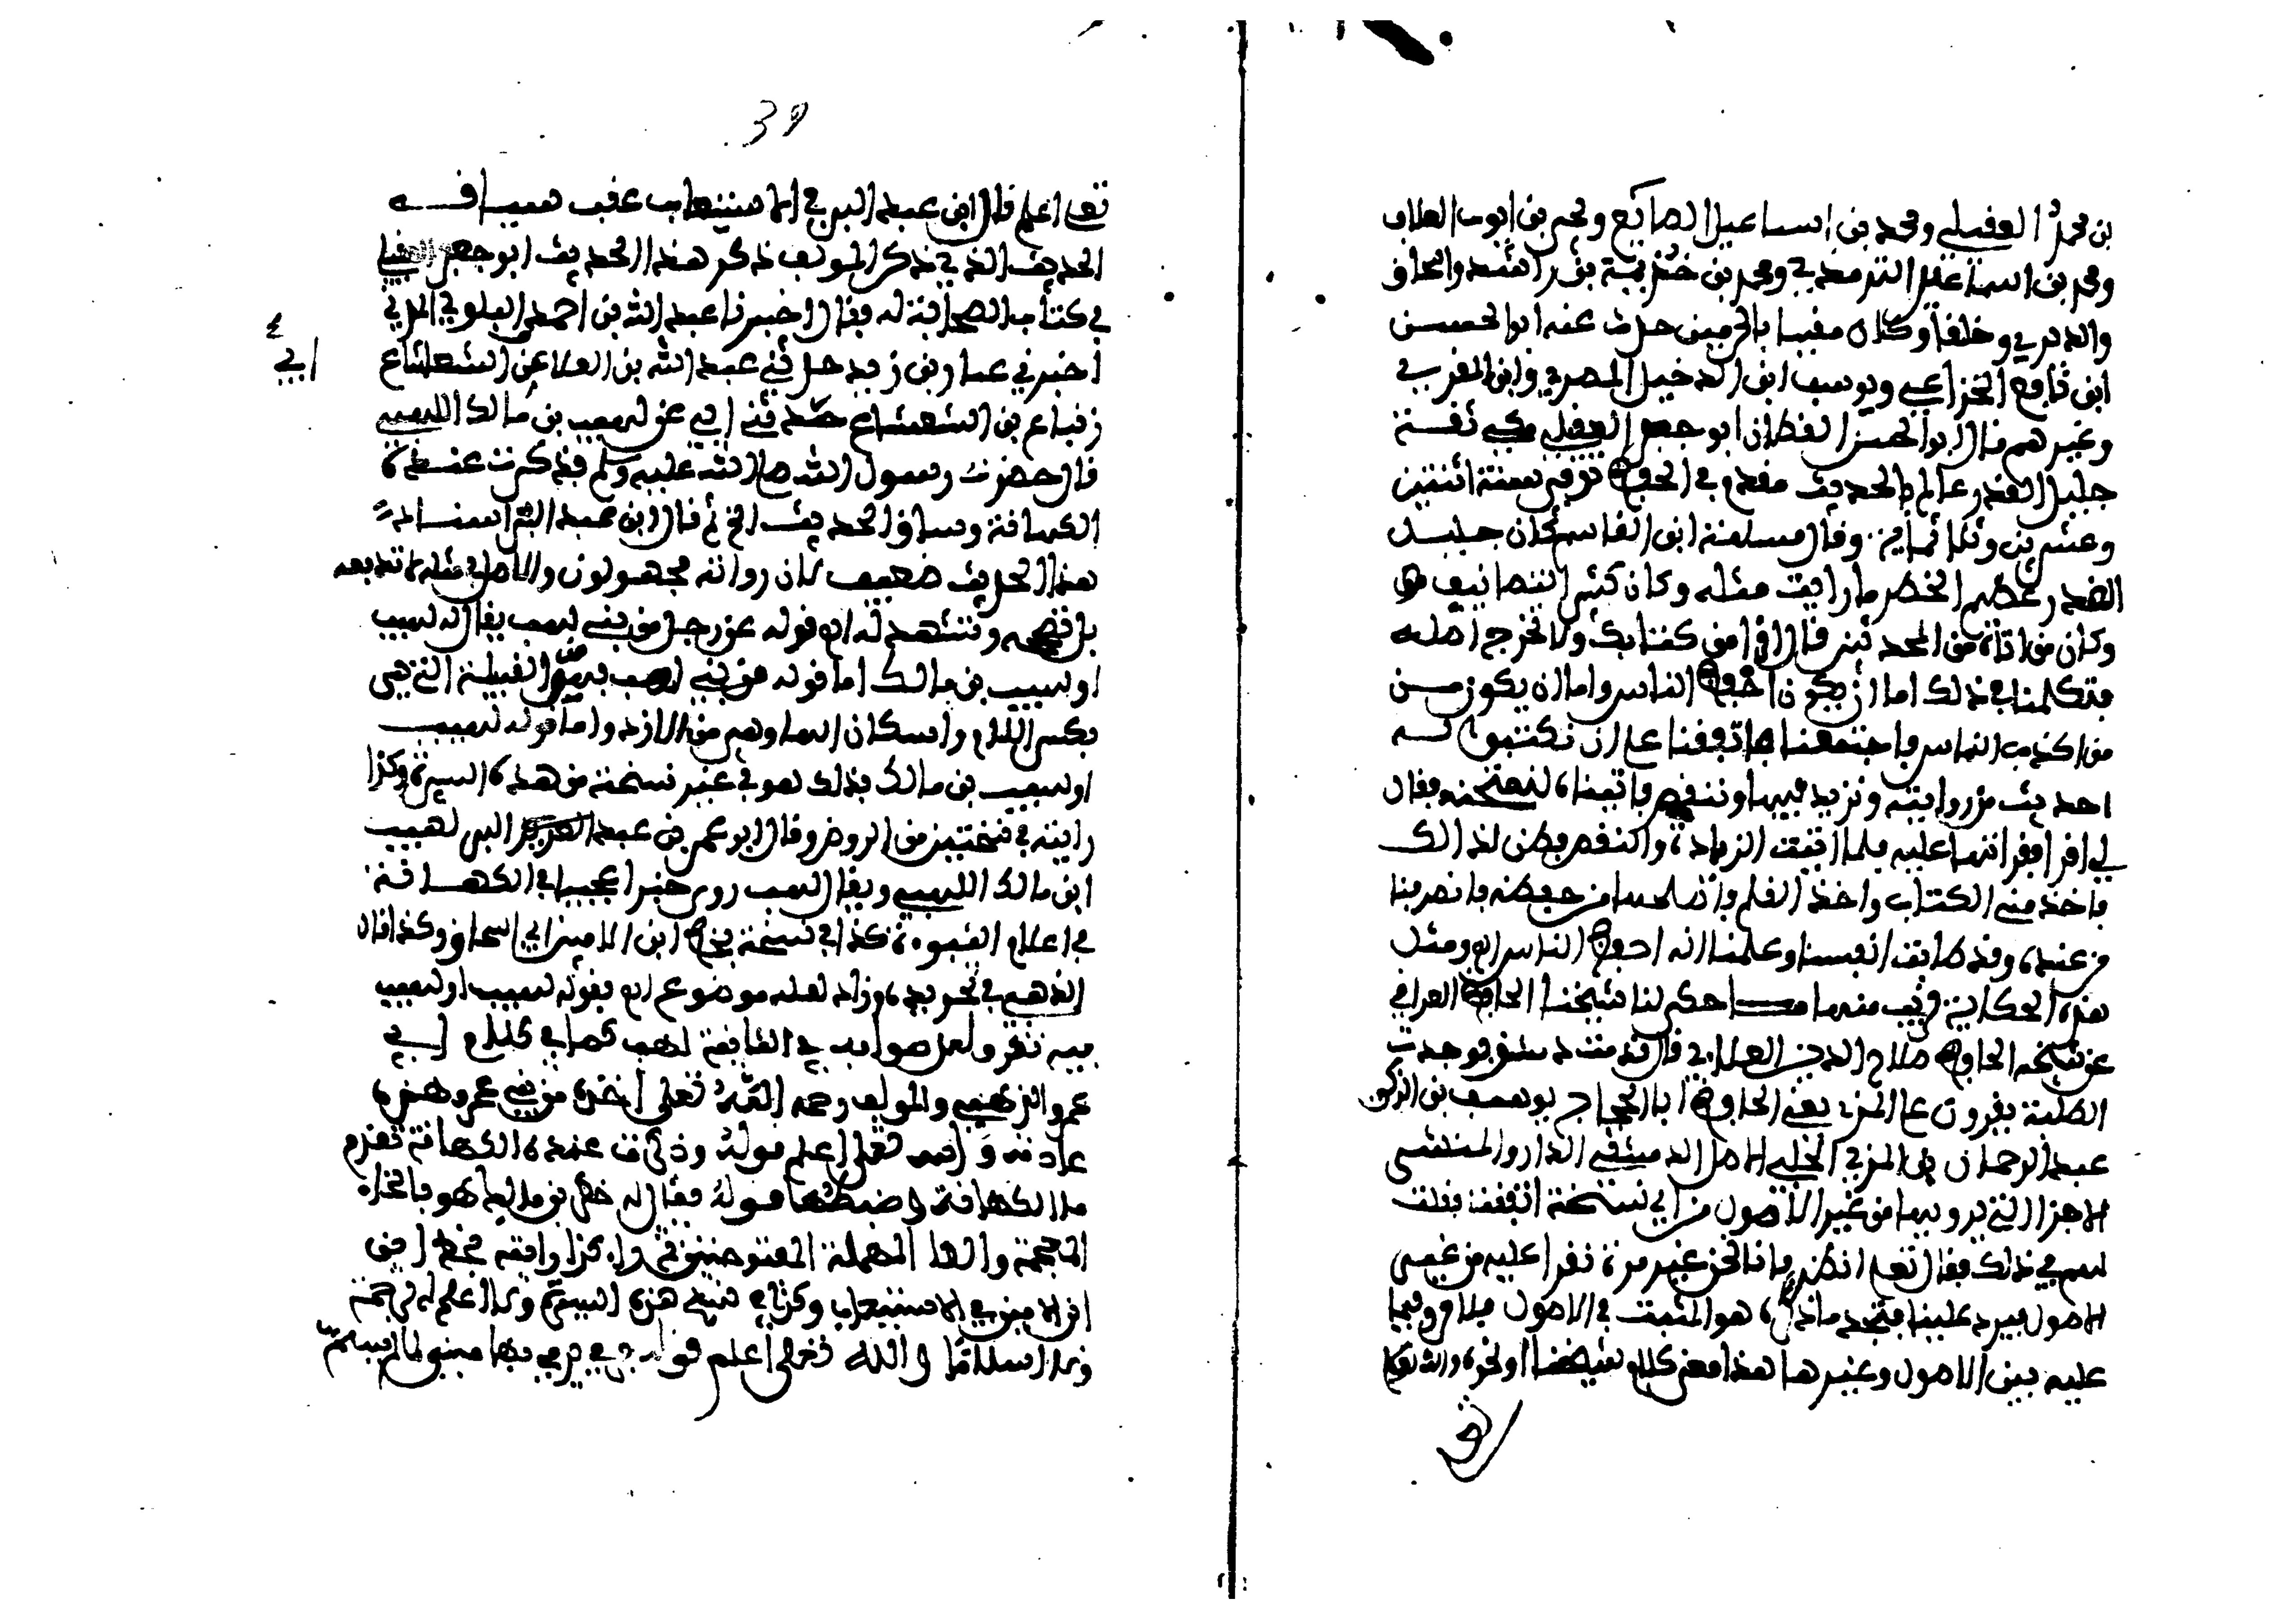 بن محمد العقيلي ومحمد بن اسماعيل الصايغ ومحمد بن ايوب العلاف
ومحمد بن اسماعيل الترمذي ومحمد بن خزيمة بن راشد واسحاق
والدبري وخلقا وكان مقيما بالحرمين حدث عنه ابو الحسن
ابن نافع الخزاعي ويوسف ابن الدخيل المصري وابن المقرئ في
وغيرهم قال ابو الحسن القطان ابو جعفر العقيلي مكي ثقة
جليل القدر عالم بالحديث مقدم في الحفظ توفي سنة اثنتين
وعشرين وثلاثماية. وقال مسلمة ابن القاسم كان جليل
القدر عظيم الخطر ما رايت مثله وكان كثير التصانيف
وكان من اتاه من المحدثين قال اقرا من كتابك ولا تخرج اصله
فتكلمنا في ذلك اما ان يكون احفظ الناس واما ان يكون من
من اكذب الناس فاجتمعنا فاتفقنا على ان نكتب له
احاديث من روايته ونزيد فيها وننقص فاتينا، لنمتحنه فقال
لي اقرا فقراتها عليه فلما اتيت الزيادة، والنقص فطن لذالك
فاخذ مني الكتاب واخذ القلم فاصلحها من حفظه فانصرفنا
من عنده، وقد طابت انفسنا وعلمنا انه احفظ الناس اه ومثل
هذه، الحكاية قريب منها ما حكى لنا شيخنا الحافظ العراقي
عن شيخه الحافظ صلاح الدين العلاءي قال قدمت دمشق فوجدت
الطلبة يقرون على المزي يعني الحافظ ابا الحجاج يوسف بن الزكي
عبد الرحمان المزي الحلبي الاصل الدمشقي الدار والمنشئ
الاجزا التي يرويها من غير الاصول من اي نسخة اتفقت فقلت
لهم في ذلك فقال تعلم انظر فانا نحن غير مرة نقرا عليه من غير
الاصول فيرد علينا فنجد ما قاله، هو المثبت في الاصول فلا فرق فيما
عليه بين الاصول وغيرها هذا معنى كلام شيخنا او نحوه، والله تعالى
تعلى
39
تعلى اعلم قال ابن عبد البر في الاستيعاب عقب سياقه
الحديث الذي ذكر المولف ذكر هذا الحديث ابو جعفر العقيلي
في كتاب الصحابة له فقال اخبرنا عبد الله بن احمد البلوي المدني
اخبرني عمارة بن زيد حدثني عبد الله بن العلا عن الشعشاع
ابي
زنباع بن الشعشاع حدثني ابي عن لهيب بن مالك اللهبي
قال حضرت رسول الله صلى الله عليه وسلم فذكرت عنده،
الكهانة وساق الحديث الخ ثم قال ابن عبد البر اسناد
هذا الحديث ضعيف لان رواته مجهولون والاصل في مثله لا تدفعه
بل تصححه وتشهد له اه قوله عن رجل من بني لهب يقال له لهيب
او لهيب بن مالك اما قوله من بني لهب فهو القبيلة التي هي
بكسر اللام واسكان الها وهم من الازد واما قوله لهيب
او لهيب بن مالك فذلك هو في غير نسخة من هذه، السيرة، وكذا
رايته في نسختين من الروض وقال ابو عمر بن عبد البر لهيب
ابن مالك اللهبي ويقال لهب روى خبرا عجيبا في الكهانة
في اعلام النبوءة، كذا في نسخة بخط ابن الامين ابي اسحاق وكذا قال
الذهبي في تجريده، وزاد لعله موضوع اه فقوله لهيب او لهيب
فيه نظر ولعل صوابه في الثانية لهب كما في كلام ابي
عمر والذهبي والمولف رحمه الله تعلى اخذه، من عمر وهذه،
عادته والله تعلى اعلم قوله وذكرت عنده، الكهانة تقدم
ما الكهانة وضبطها قوله فقال له خطر بن مالك هو بالخاء
المعجمة والطا المهملة المفتوحتين ثم راء، كذا رايته بخط ابن
الامين في الاستيعاب وكذا في نسخ هذه، السيرة ولا اعلم له ترجمة
ولا اسلاما والله تعلى اعلم قوله